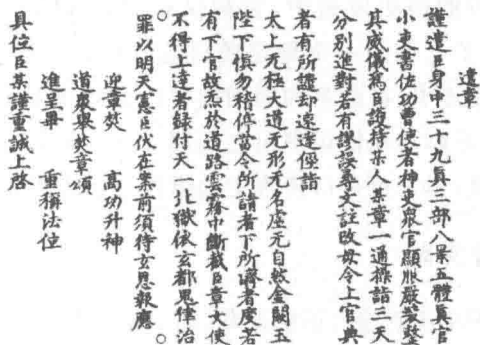 遣章
謹遣臣身中三十九真三部八景五體真官
小吏書佐功曹使者神父眾官顯服嚴裝整
其威儀爲臣謹持某人某章一通操詣三天
分別進對若有謬誤尋文註改毋令上官典
者有所譴却速達徑詣
太上無極大道無形無名虛無自然金闕玉
陛下慎勿稽停當令所請者下所謂者度若
有下官故炁於道路雲霧中斷截臣章文使
不得上達者録付天一北獄依玄都鬼律治
罪以明天憲臣伏在案前須待玄恩報應
迎章焚 高功升神
道眾舉焚章頌
進呈畢 重稱法位
具位臣某謹重誠上啓